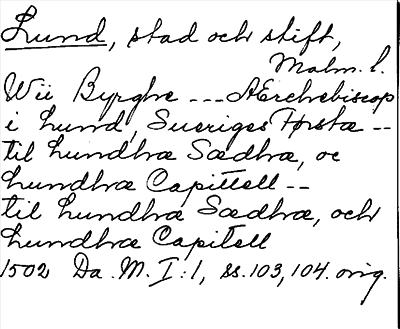 Lund, stad och stift,
Malm. l.
Wii Byrghe --- Ærchebiscop
i Lund, Sueriges Førstæ --
til Lundhræ Sædhræ, oc
Lundhræ Capittell --
til Lundhræ Sædhræ, och
Lundhræ Capitell
1502 Da. M. I:1, ss. 103, 104. orig.